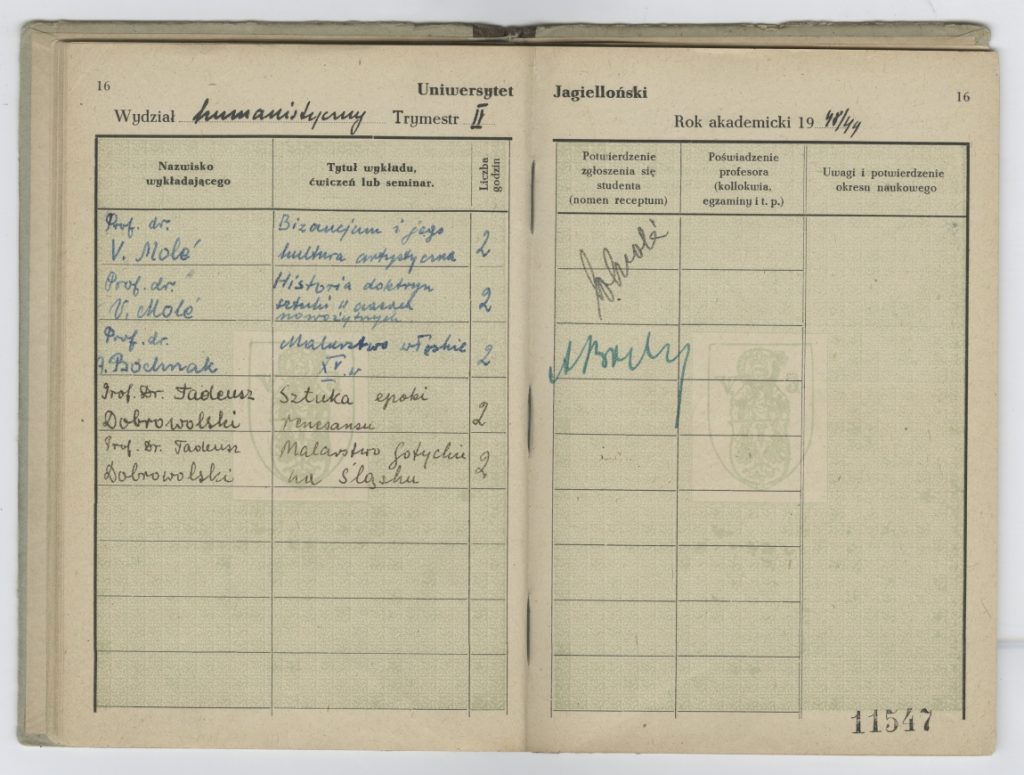 16
Uniwersytet Jagielloński
16
Wydział humanistyczny Trymestr II
Rok akademicki 19 48/49
Nazwisko
wykładającego
Tytuł wykładu,
ćwiczeń lub seminar.
Liczba
godzin
Potwierdzenie
zgłoszenia się
studenta
(nomen receptum)
Poświadzenie
profesora
(kollokwia,
egzaminy i t. p.)
Uwagi i potwierdzenie
okresu naukowego
Prof. dr.
V. Molé
Bizancjum i jego
kultura artystyczna
2
V. Molé
Prof. dr.
V. Molé
Historia doktryn
sztuki w czasach
nowożytnych
2
Prof. dr.
A. Bochnak
Malarstwo włoskie
XV w
2
ABoch
Prof. Dr. Tadeusz
Dobrowolski
Sztuka epoki
renesansu
2
Prof. Dr. Tadeusz
Dobrowolski
Malarstwo Gotyckie
na Śląsku
2
11547